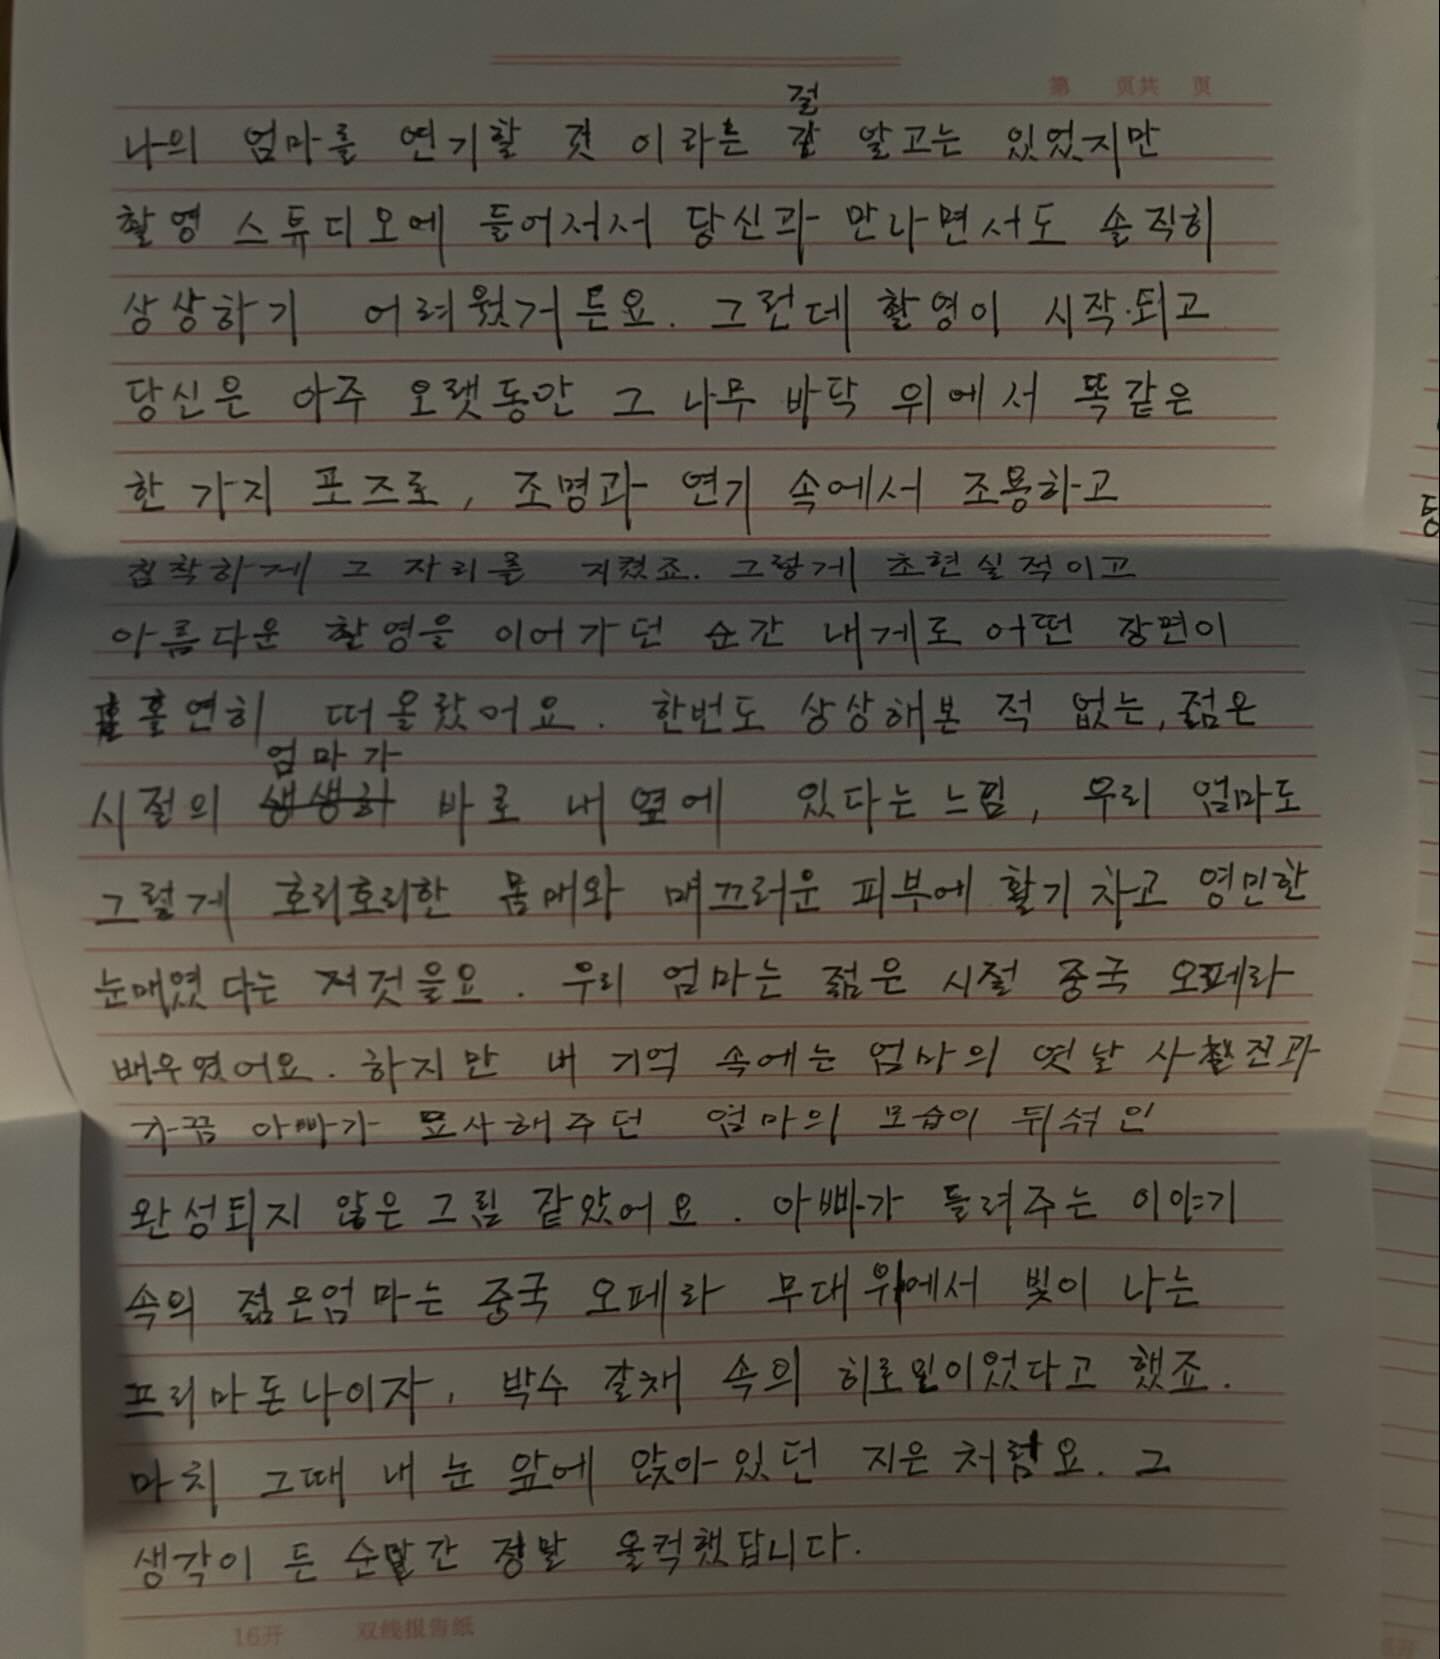 第 页共 页
나의 엄마를 연기할 것 이라는 걸 알고는 있었지만
촬영 스튜디오에 들어서서 당신과 만나면서도 솔직히
상상하기 어려웠거든요. 그런데 촬영이 시작되고
당신은 아주 오랫동안 그 나무 바닥 위에서 똑같은
한 가지 포즈로, 조명과 연기 속에서 조용하고
침착하게 그 자리를 지켰죠. 그렇게 초현실적이고
아름다운 촬영을 이어가던 순간 내게로 어떤 장면이
홀연히 떠올랐어요. 한번도 상상해본 적 없는, 젊은
엄마가
시절의 생생히 바로 내 옆에 있다는 느낌, 우리 엄마도
그렇게 호리호리한 몸매와 매끄러운 피부에 활기 차고 영민한
눈매였다는 저것을요. 우리 엄마는 젊은 시절 중국 오페라
배우였어요. 하지만 내 기억 속에는 엄마의 옛날 사진과
가끔 아빠가 묘사해주던 엄마의 모습이 뒤섞인
완성되지 않은 그림 같았어요. 아빠가 들려주는 이야기
속의 젊은엄마는 중국 오페라 무대 위에서 빛이 나는
프리마돈나이자, 박수 갈채 속의 히로인이었다고 했죠.
마치 그때 내 눈 앞에 앉아있던 지은처럼요. 그
생각이 든 순간 정말 울컥했답니다.
16开 双线报告纸